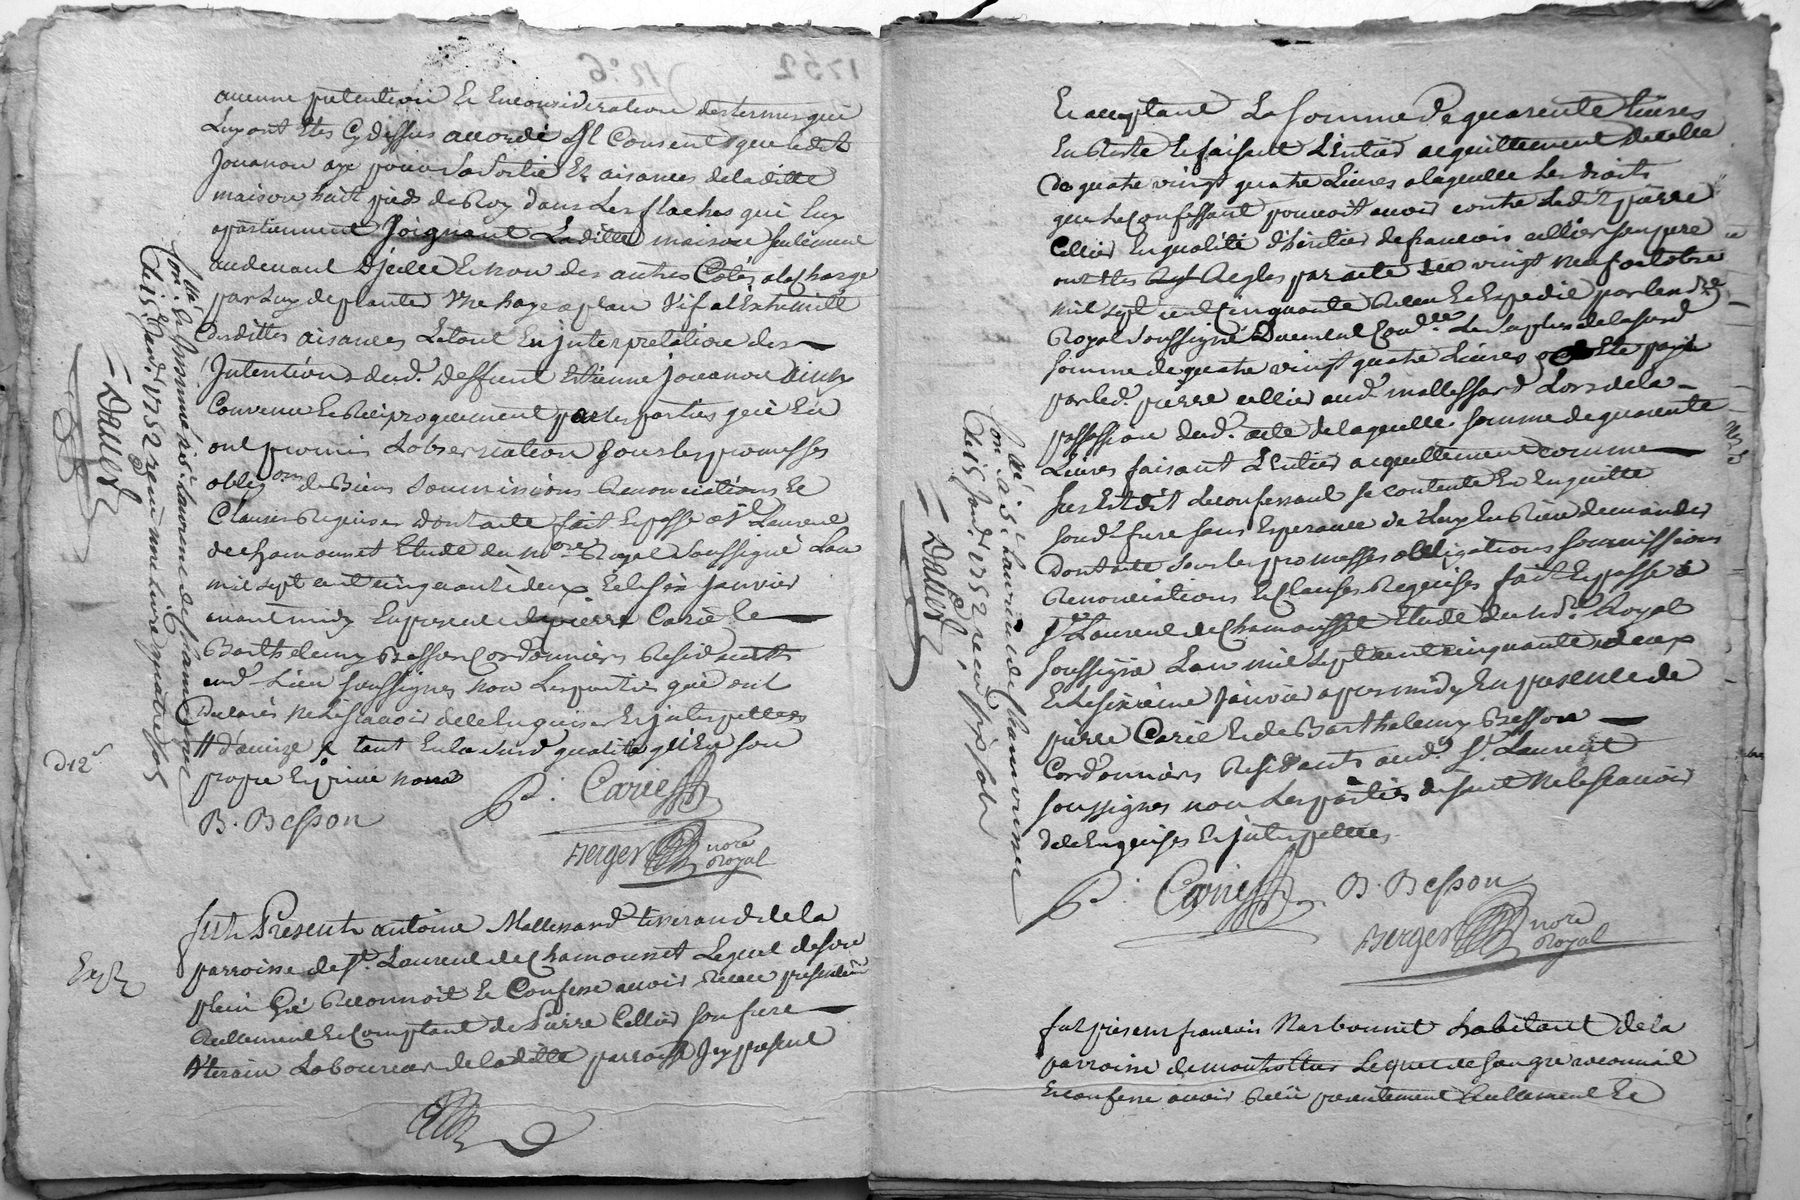 aucune pretention Et Enconsideration destermes qui
Luy ont Etes Cydessus accordé Il Consent que ledt
Jouanon aye pour sa sortie Et aisances deladitte
maison huit pieds de Roy dans Les flaches qui Luy
apartiennent Joignant Laditte maison seulement
audevant dicelle Et non des autres Cotés alacharge
par Luy de planter Une haye a plan Vif alextremitté
desdittes aisances Letout En interpretation des
Intentions dud. deffunt Etienne jouanon ainsy
Convenu Et Reciproquement par les parties qui En
ont promis Lobservation sous les promesses
obligons de Biens soumissions Renonciations Et
Clauses Requises dont acte fait Et passé a St Laurent
de chamousset Etude du nore Royal soussigné Lan
mil sept cent cinquante deux Et le six janvier
avant midy En presence de pierre Carié Et
Barthelemy Besson Cordonniers Residents
aud. Lieu soussignes non Les parties qui ont
declarés ne le scavoir de ce Enquises Et interpellées
tant En lad. qualité qu'En son
propre Et privé nom
B. Besson
P. Carié
Berger nore
Royal
d 12s
Con.llé Et Insinué a St Laurent de chamousset
le 15 Janv. 1752 reçu une livre quatre sols
Dauer
Exp.
fut Present antoine Mallessard tisserand de la
parroisse de St. Laurent de Chamousset Lequel de son
plein Gré Reconnoit Et Confesse avoir Receu presentement
Reellement Et Comptant de Pierre Cellier son frere
Uterain Laboureur de laditte parroisse Icy present
Et acceptant La somme De quarente Livres
En Reste Et faisant L'Entier acquittement De celle
De quatre vingt quatre Livres a laquelle Les droits
que Le Confessant pouvoit avoir contre Ledit pierre
Cellier En qualité d'héritier de francois cellier son pere
ont Etes Reglés par acte du vingt neuf octobre
mil sept cent Cinquante Receu Et Expedié par le nore
Royal soussigné Duement Con.llé Le surplus de lasusd.
somme de quatre vingt quatre Livres Eté payé
par led. pierre cellier aud. mallessard Lors de la
passassion dud. acte de laquelle somme de quarente
Livres faisant L'Entier acquittement comme
sus Est dit Le confessant se contente Et En quitte
sond. frere sans Esperance de Luy En Rien demander
dont acte sous les promesses obligations soumissions
Renonciations Et Clauses Requises fait Et passé a
St. Laurent de Chamousset Etude du nore. Royal
soussigné Lan mil sept cent cinquante deux
Et le sixieme janvier apres midy En presence de
pierre Carié Et de Barthelemy Besson
Cordonniers Residents aud. St. Laurent
soussignes non Les parties disant ne le scavoir
de ce Enquises Et interpellées
P. Carié
B. Besson
Berger nore
Royal
Con.llé a St Laurent de chamousset
le 15 janv. 1752 reçu six sols
Dauer
fut present francois Narbonnet habitant de la
parroisse de montrottier Lequel de son gré reconnoit
Et confesse avoir Reçu presentement Reellement Et
1752